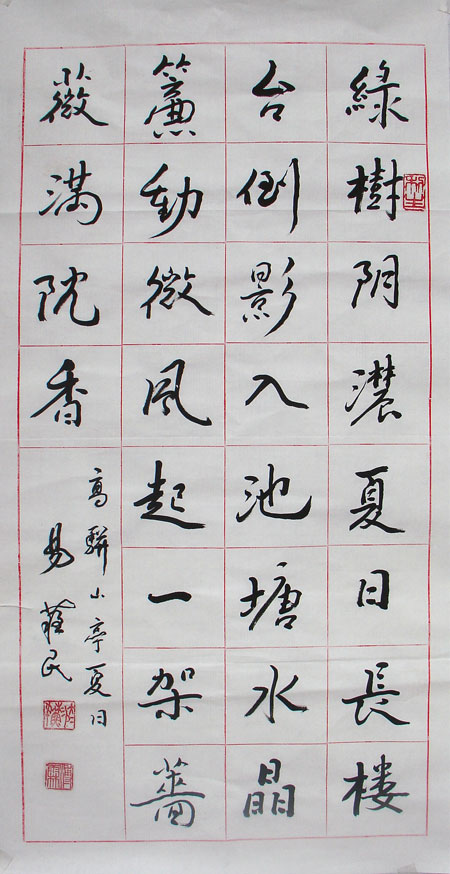 綠樹阴濃夏日長楼
台倒影入池塘水晶
簾動微風起一架薔
薇满院香
高駢山亭夏日
易民